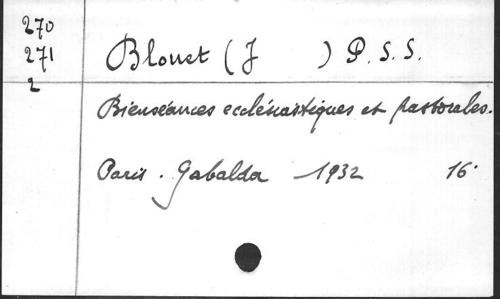 270
271
2
Blouet (J ) P.S.S.
Bienséances ecclésiastiques et pastorales.
Paris. Gabalda 1932 16°